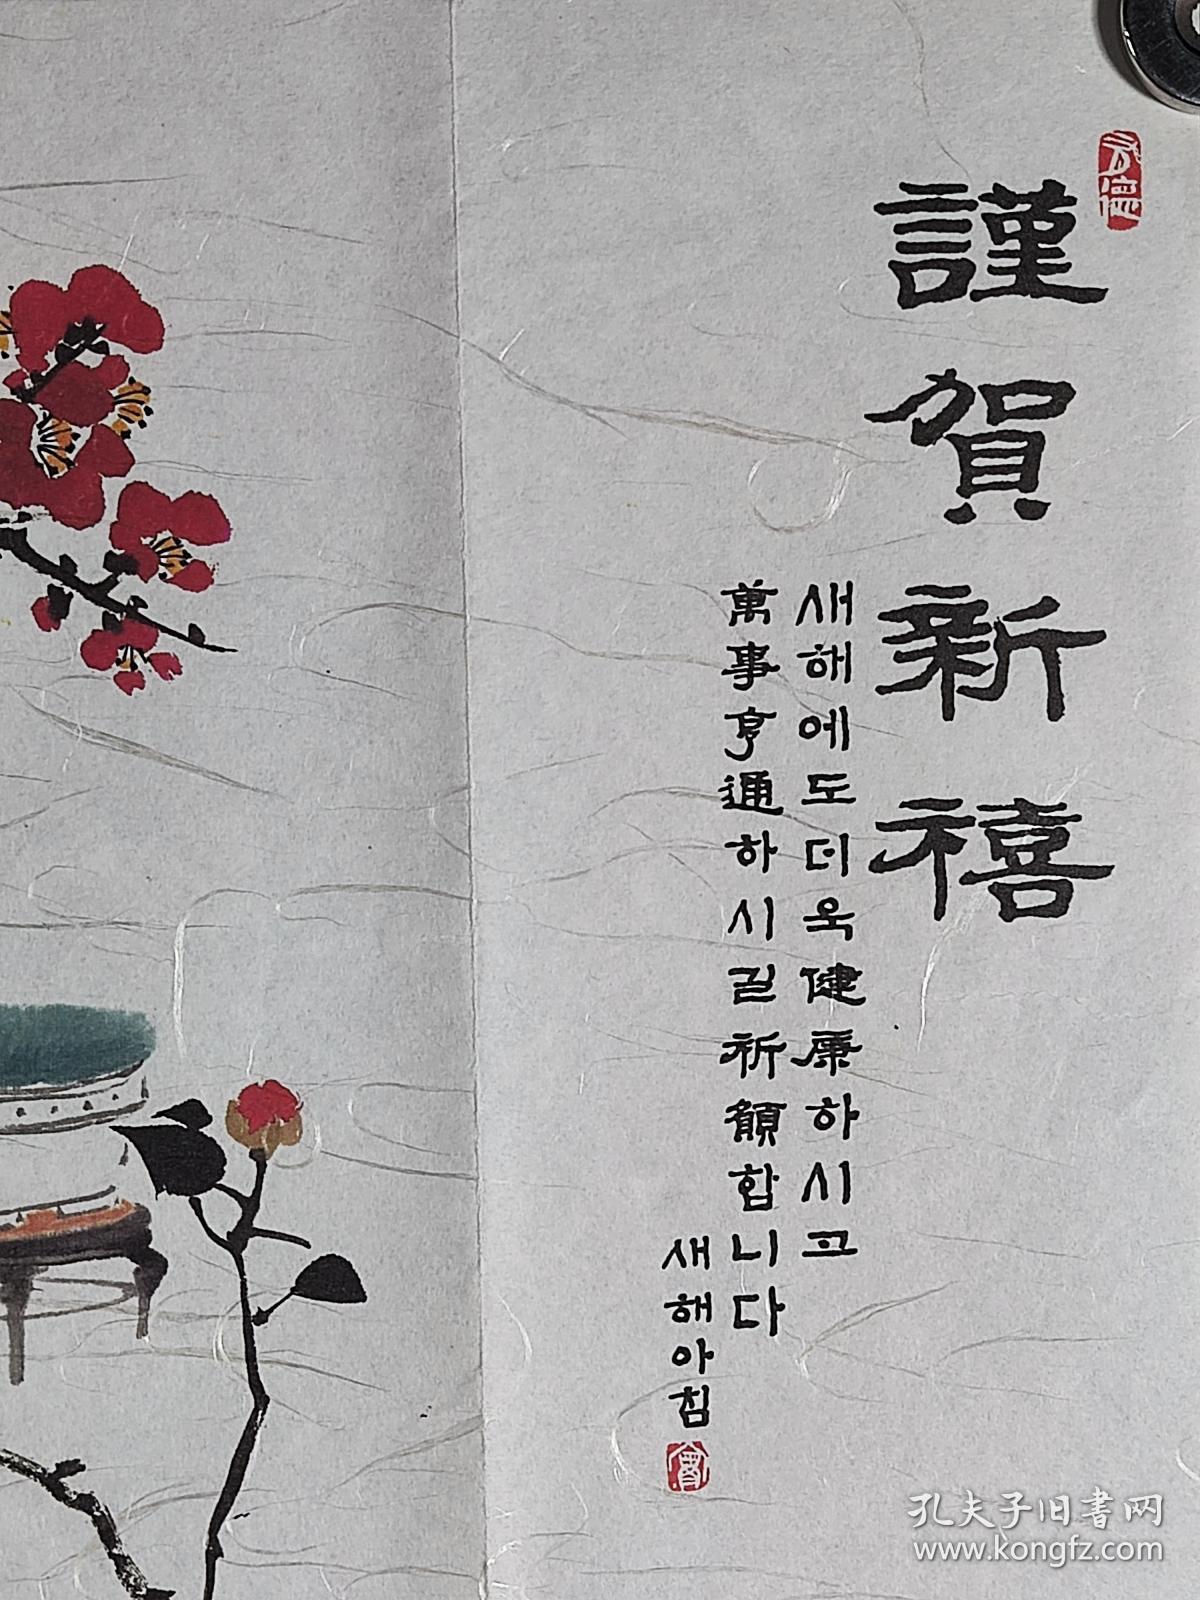 謹賀新禧
새해에도더욱健康하시고
萬事亨通하시길祈願합니다
새해아침
孔夫子旧书网
www.kongfz.com